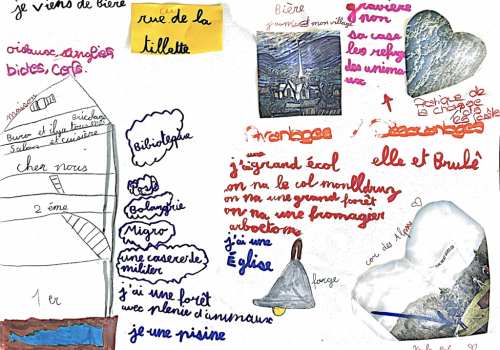 je viens de Bière
rue de la
tillette
oiseaux, sangliés
biches, cerfs.
maison
Bricolage
Salon et cuisière
cher nous
2 ème
1 er
Bibioteque
Poste
Bolangrie
Migro
une casere de
militer
j'ai une forêt
avec plenie d'animaux
je une pisine
Bière
j'aime mon village
gravière
non
sa case
les refuge
des anima
ux
Pratique de
la chasse
Avantages / Désavantages
une
j'ai grand écol
on na une grand forêt
on na une fromagier
arboctom
j'ai une
Église
forge
elle et Brulé
cor des Alpes